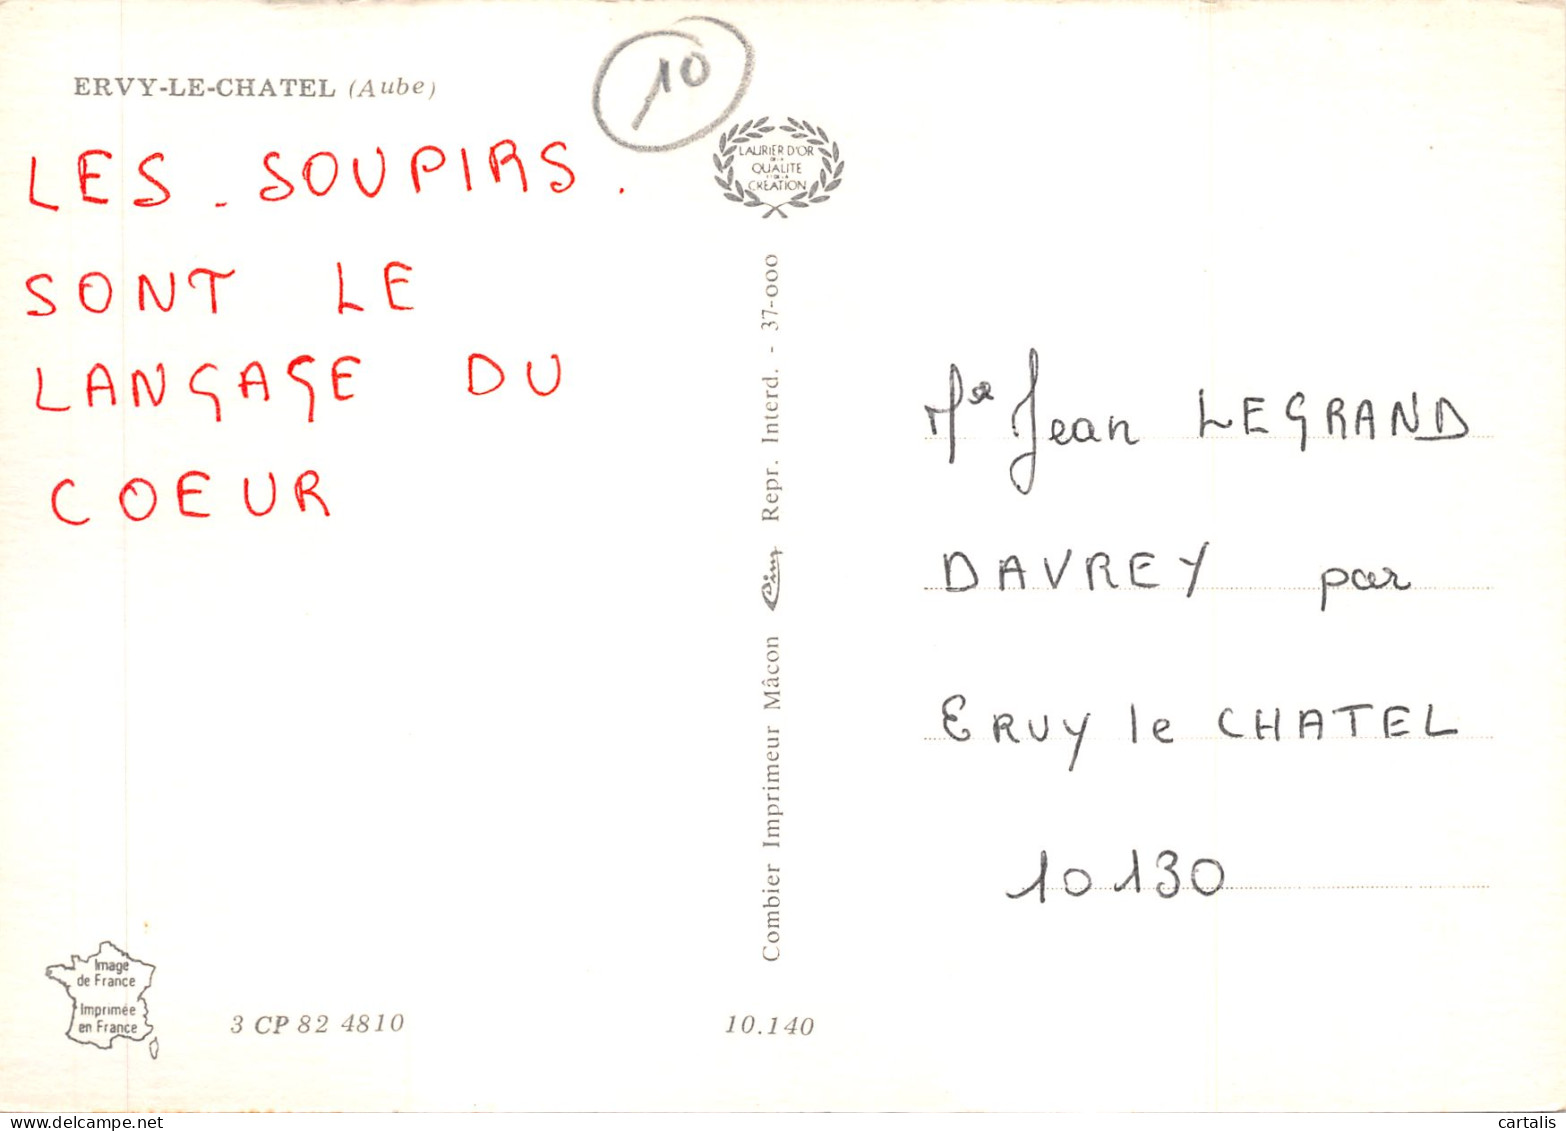 ERVY-LE-CHATEL (Aube)
10
LES - SOUPIRS.
SONT LE
LANGAGE DU
COEUR
LAURIER D'OR
DE LA
QUALITE
ET DE LA
CREATION
Combier Imprimeur Mâcon Cim Repr. Interd. - 37-000
Mr Jean LEGRAND
DAVREY par
ERVY le CHATEL
10130
Image
de France
Imprimée
en France
3 CP 82 4810
10.140
www.cartalis.com